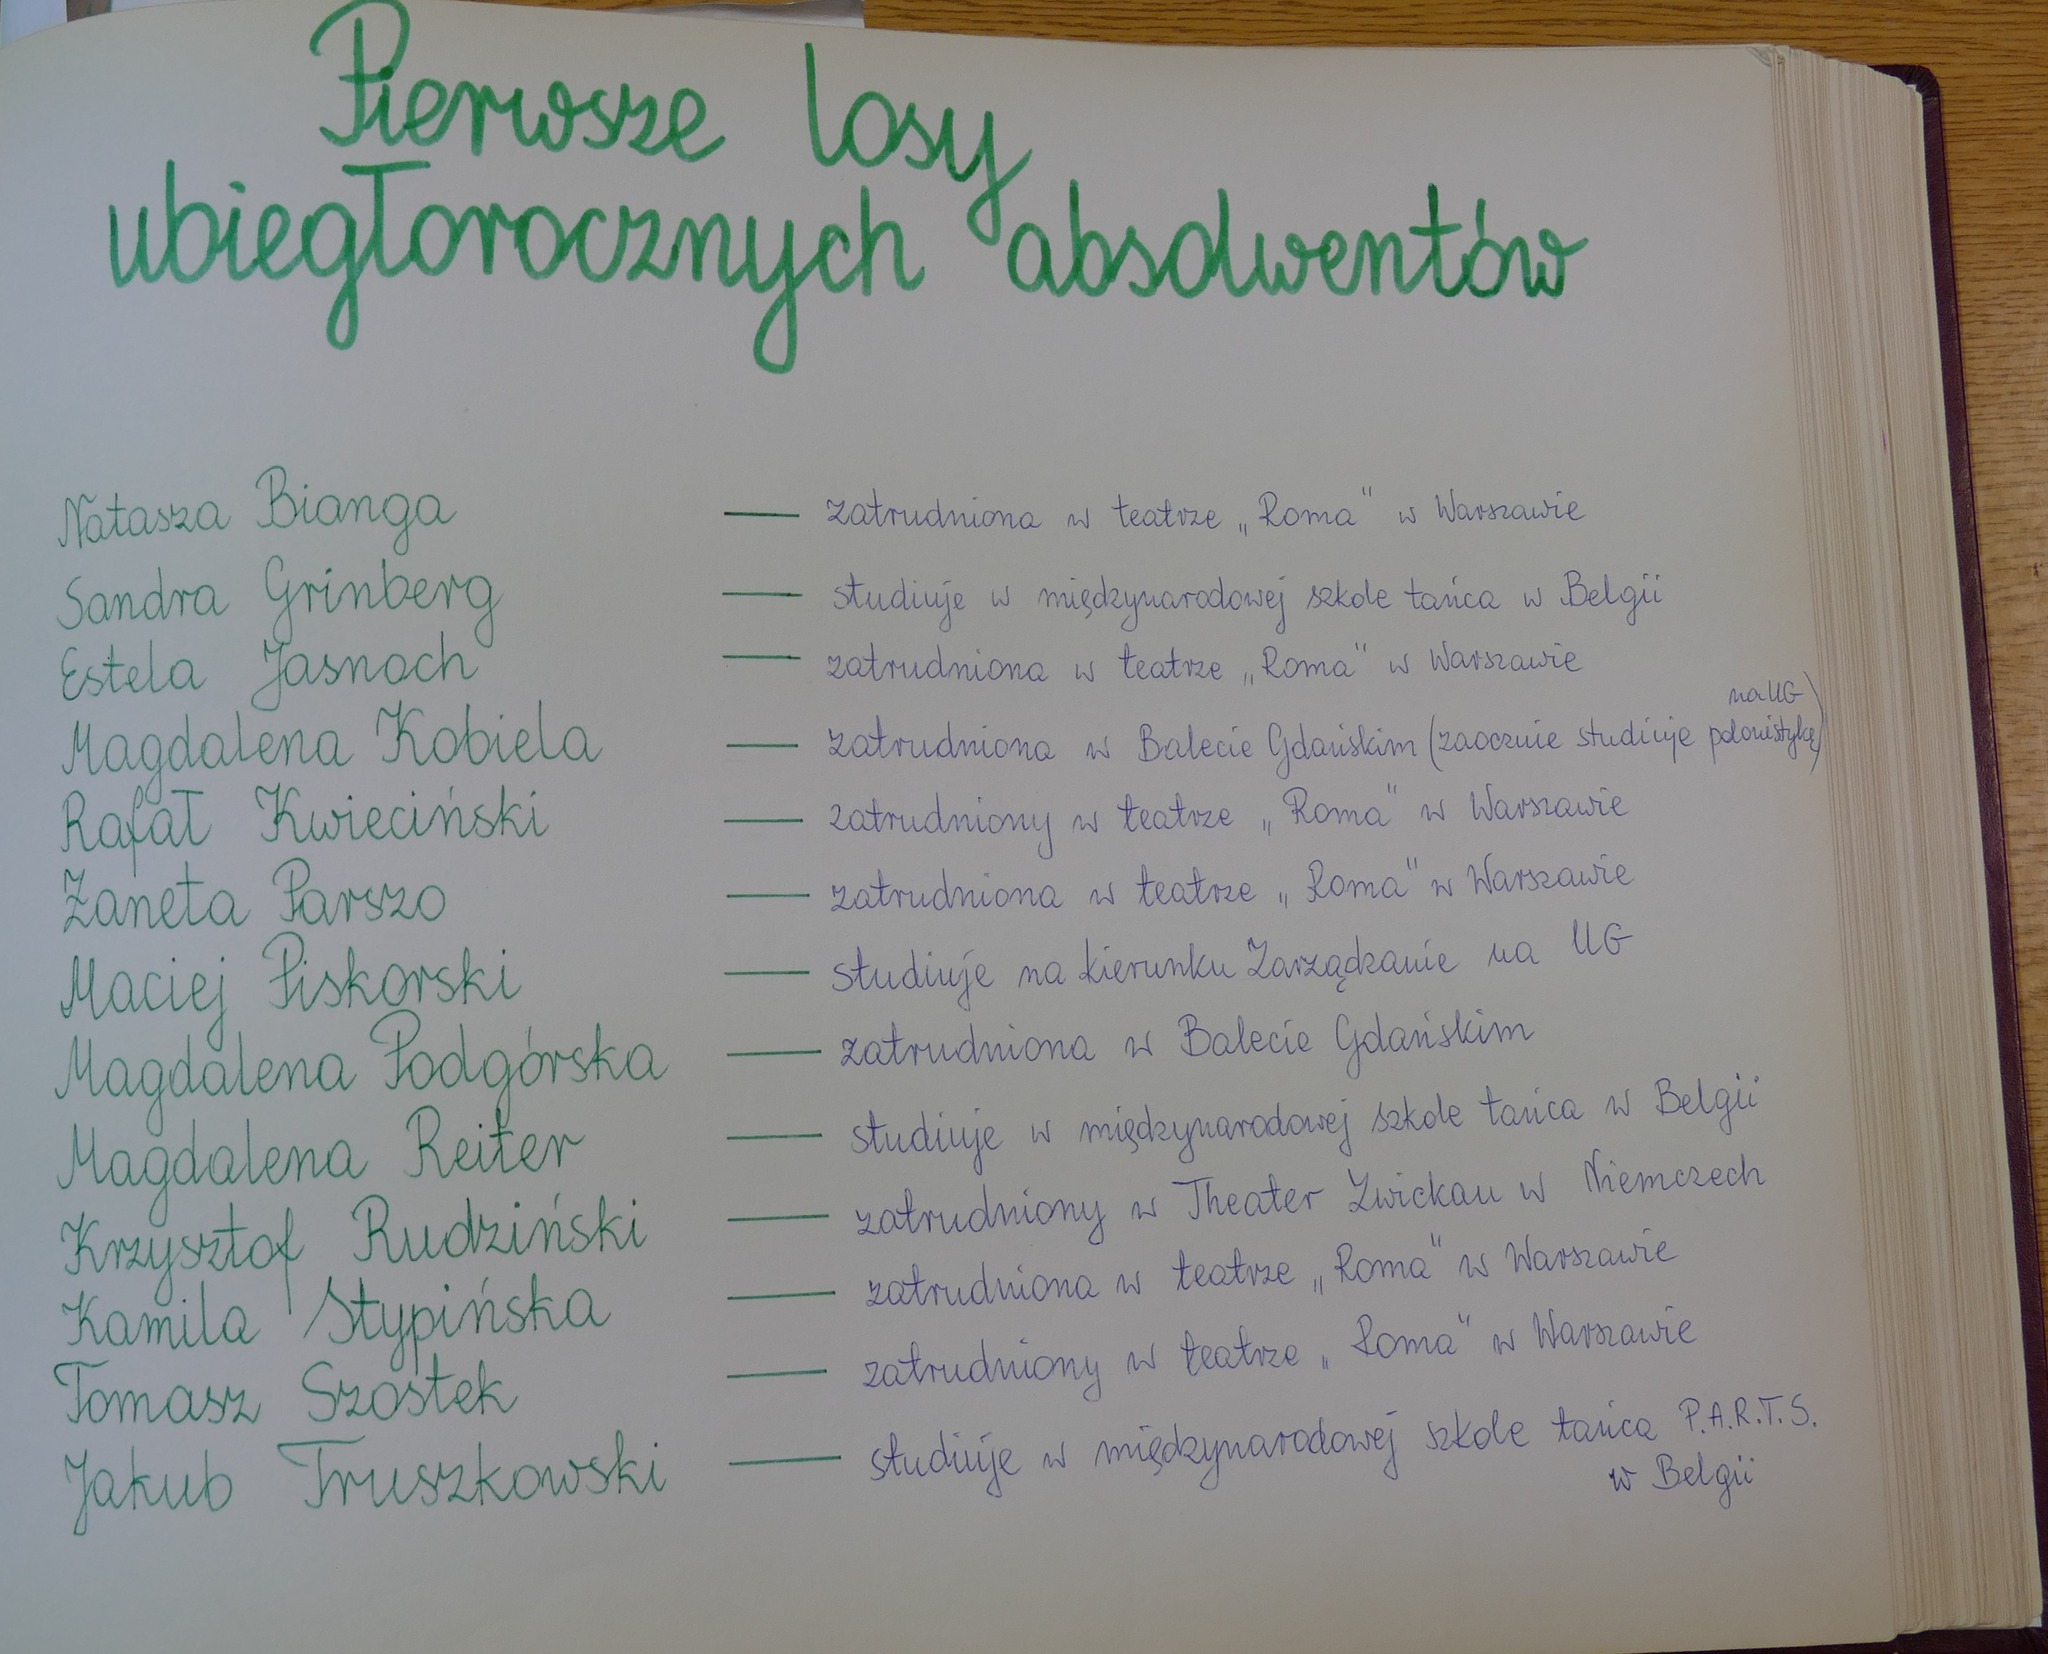 Pierwsze losy
ubiegłorocznych absolwentów
Natasza Bianga — zatrudniona w teatrze „Roma" w Warszawie
Sandra Grinberg — studiuje w międzynarodowej szkole tańca w Belgii
Estela Jasnoch — zatrudniona w teatrze „Roma" w Warszawie
Magdalena Kobiela — zatrudniona w Balecie Gdańskim (zaocznie studiuje polonistykę na UG)
Rafał Kwieciński — zatrudniony w teatrze „Roma" w Warszawie
Żaneta Parszo — zatrudniona w teatrze „Roma" w Warszawie
Maciej Piskorski — studiuje na kierunku Zarządzanie na UG
Magdalena Podgórska — zatrudniona w Balecie Gdańskim
Magdalena Reiter — studiuje w międzynarodowej szkole tańca w Belgii
Krzysztof Rudziński — zatrudniony w Theater Zwickau w Niemczech
Kamila Stypińska — zatrudniona w teatrze „Roma" w Warszawie
Tomasz Szostek — zatrudniony w teatrze „Roma" w Warszawie
Jakub Truszkowski — studiuje w międzynarodowej szkole tańca P.A.R.T.S.
w Belgii